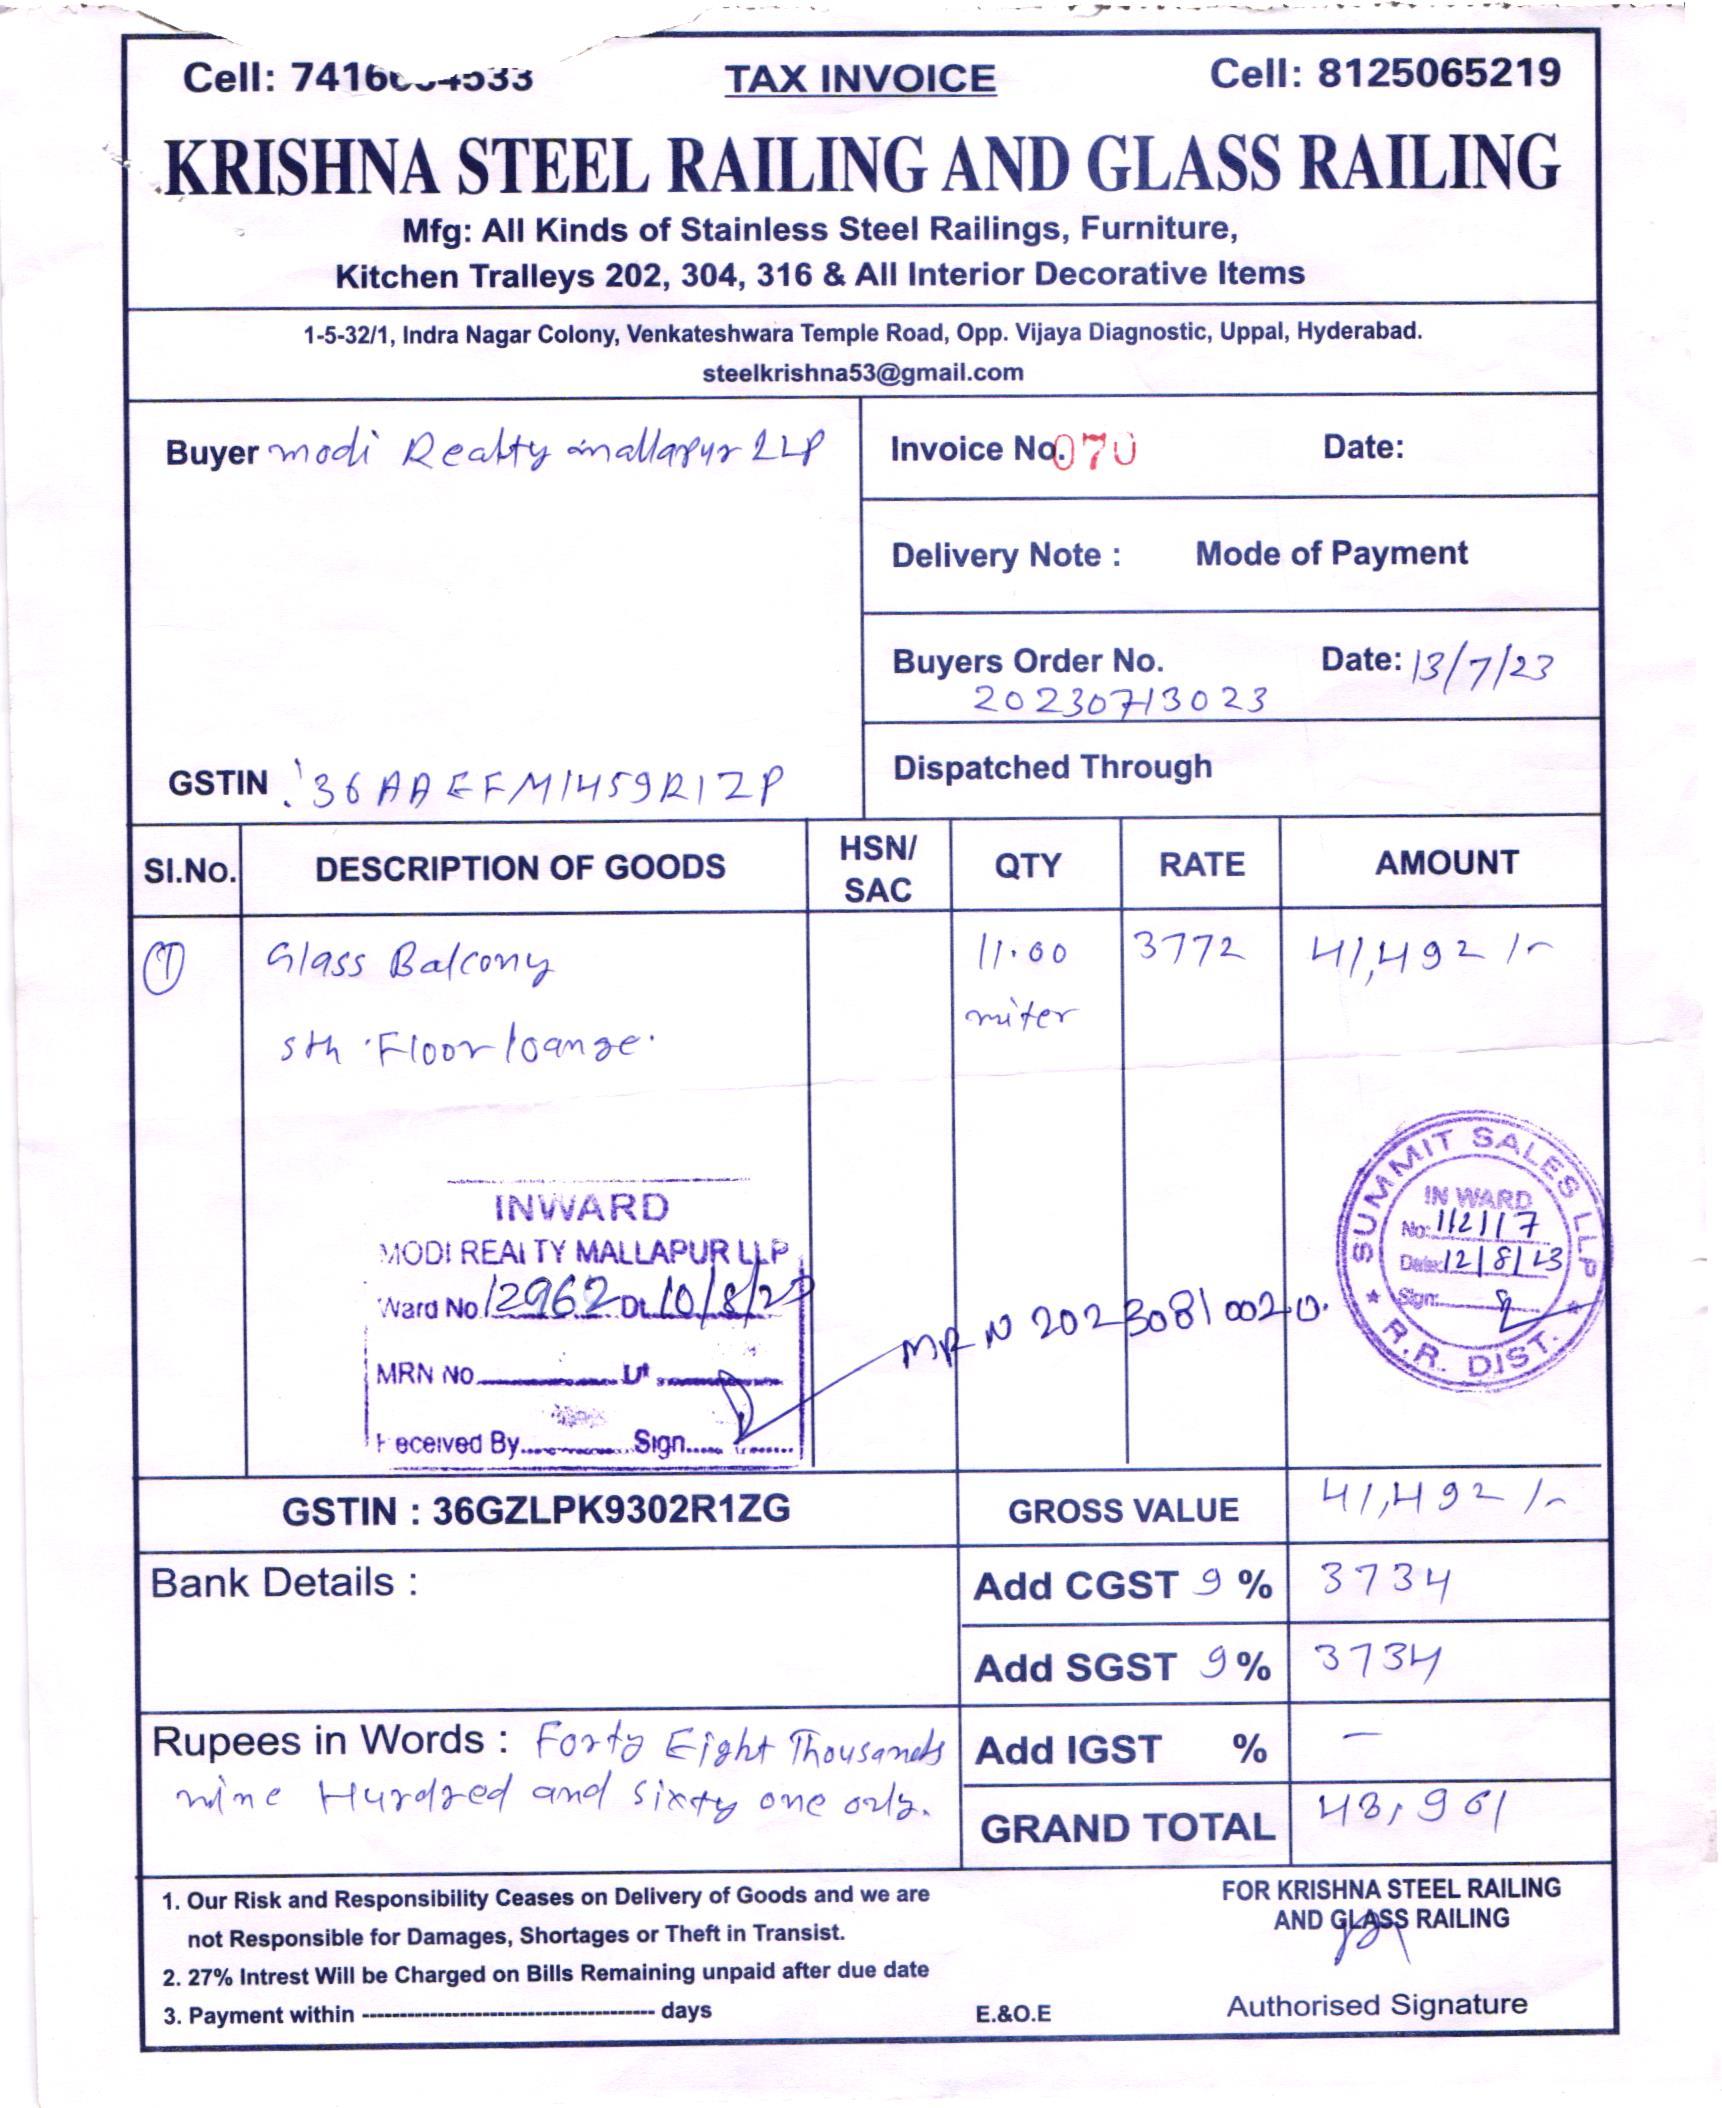 Cell: 7416 4533
TAX INVOICE
Cell: 8125065219
KRISHNA STEEL RAILING AND GLASS RAILING
Mfg: All Kinds of Stainless Steel Railings, Furniture,
Kitchen Tralleys 202, 304, 316 & All Interior Decorative Items
1-5-32/1, Indra Nagar Colony, Venkateshwara Temple Road, Opp. Vijaya Diagnostic, Uppal, Hyderabad.
steelkrishna53@gmail.com
Buyer modi Realty mallapur LLP
Invoice No. 070 Date:
Delivery Note : Mode of Payment
Buyers Order No. Date: 13/7/23
20230713023
GSTIN : 36AAEFM1459R1ZP
Dispatched Through
Sl.No. DESCRIPTION OF GOODS HSN/SAC QTY RATE AMOUNT
1 Glass Balcony 11.00 3772 41,492/-
miter
5th Floor loange.
INWARD
MODI REALTY MALLAPUR LLP
Ward No 12962 Dt. 10/8/23
MRN No Dt
Received By Sign
MRN 20230810020.
SUMMIT SALES LLP
IN WARD
No: 112117
Date: 12/8/23
Sign:
R.R. DIST.
GSTIN : 36GZLPK9302R1ZG
GROSS VALUE 41,492/-
Bank Details :
Add CGST 9 % 3734
Add SGST 9 % 3734
Rupees in Words : Forty Eight Thousands
nine Hurdred and sixty one only.
Add IGST % -
GRAND TOTAL 48,961
1. Our Risk and Responsibility Ceases on Delivery of Goods and we are
not Responsible for Damages, Shortages or Theft in Transist.
2. 27% Intrest Will be Charged on Bills Remaining unpaid after due date
3. Payment within ---------------------------------------- days
E.&O.E
FOR KRISHNA STEEL RAILING
AND GLASS RAILING
Authorised Signature